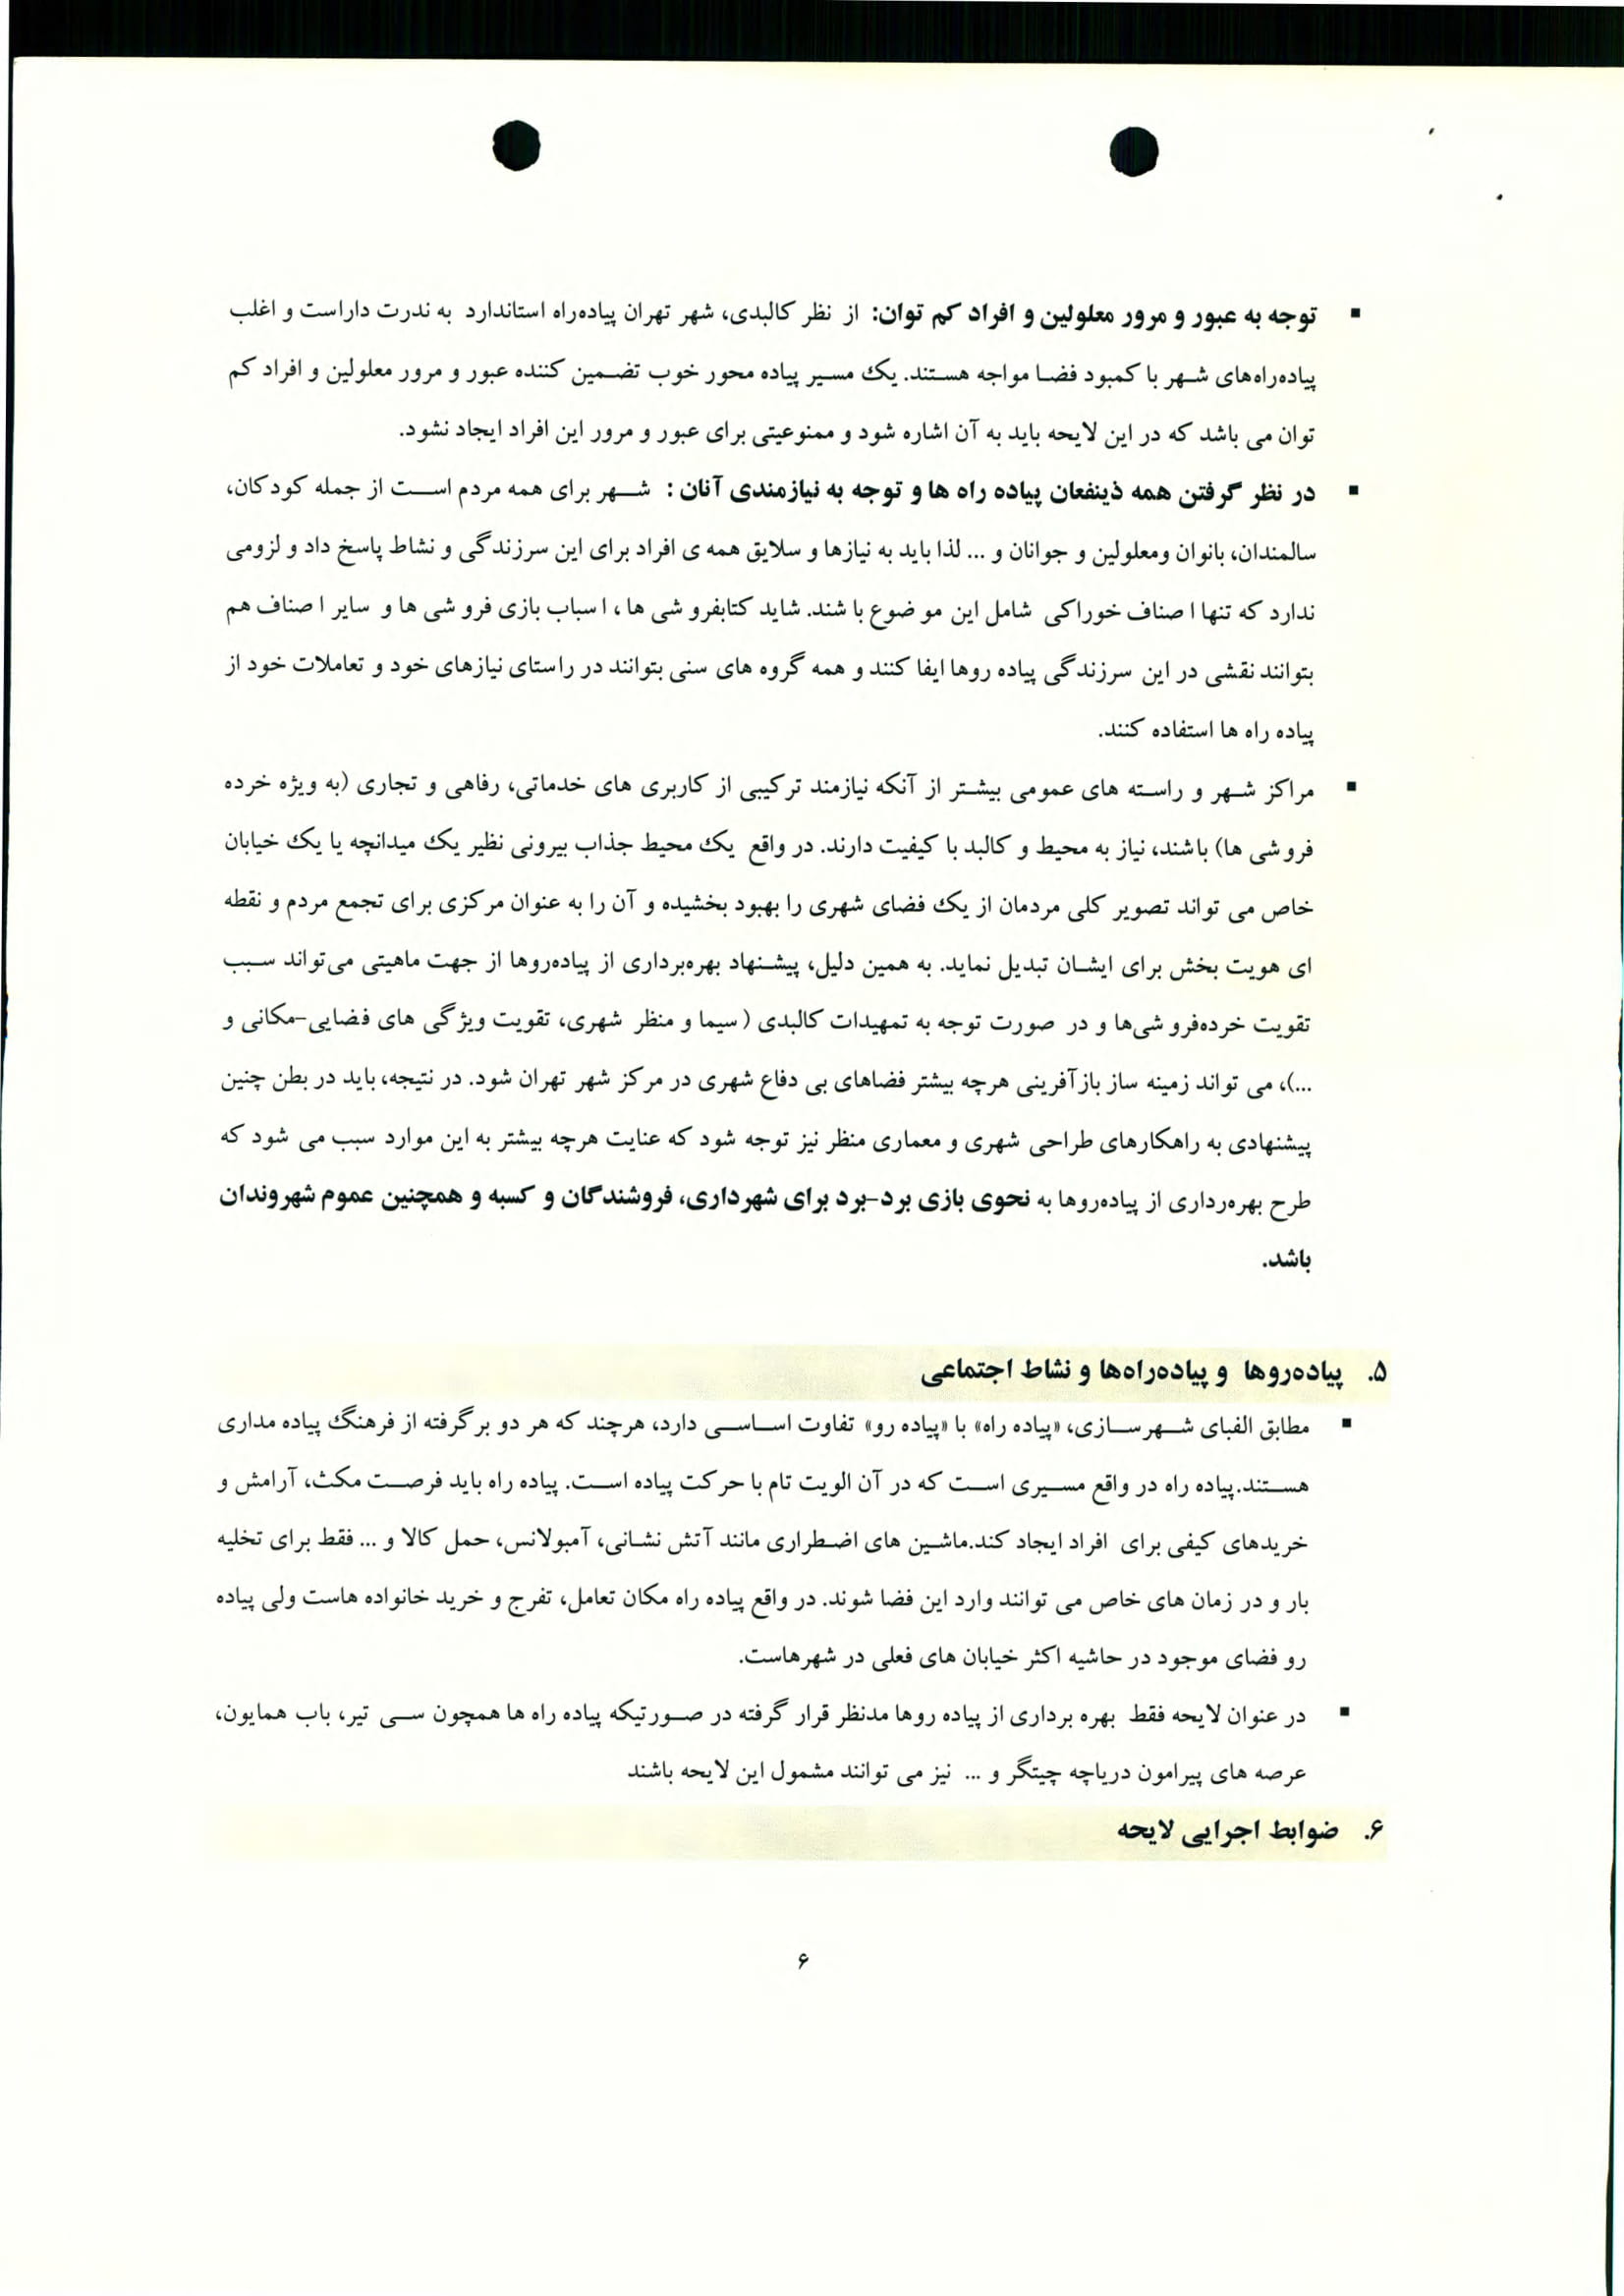 ▪ توجه به عبور و مرور معلولین و افراد کم توان: از نظر کالبدی، شهر تهران پیاده‌راه استاندارد به ندرت داراست و اغلب
پیاده‌راه‌های شهر با کمبود فضا مواجه هستند. یک مسیر پیاده محور خوب تضمین کننده عبور و مرور معلولین و افراد کم
توان می باشد که در این لایحه باید به آن اشاره شود و ممنوعیتی برای عبور و مرور این افراد ایجاد نشود.
▪ در نظر گرفتن همه ذینفعان پیاده راه ها و توجه به نیازمندی آنان : شهر برای همه مردم است از جمله کودکان،
سالمندان، بانوان ومعلولین و جوانان و ... لذا باید به نیازها و سلایق همه ی افراد برای این سرزندگی و نشاط پاسخ داد و لزومی
ندارد که تنها اصناف خوراکی شامل این موضوع باشند. شاید کتابفروشی ها ، اسباب بازی فروشی ها و سایر اصناف هم
بتوانند نقشی در این سرزندگی پیاده روها ایفا کنند و همه گروه های سنی بتوانند در راستای نیازهای خود و تعاملات خود از
پیاده راه ها استفاده کنند.
▪ مراکز شهر و راسته های عمومی بیشتر از آنکه نیازمند ترکیبی از کاربری های خدماتی، رفاهی و تجاری (به ویژه خرده
فروشی ها) باشند، نیاز به محیط و کالبد با کیفیت دارند. در واقع یک محیط جذاب بیرونی نظیر یک میدانچه یا یک خیابان
خاص می تواند تصویر کلی مردمان از یک فضای شهری را بهبود بخشیده و آن را به عنوان مرکزی برای تجمع مردم و نقطه
ای هویت بخش برای ایشان تبدیل نماید. به همین دلیل، پیشنهاد بهره‌برداری از پیاده‌روها از جهت ماهیتی می‌تواند سبب
تقویت خرده‌فروشی‌ها و در صورت توجه به تمهیدات کالبدی ( سیما و منظر شهری، تقویت ویژگی های فضایی-مکانی و
...)، می تواند زمینه ساز بازآفرینی هرچه بیشتر فضاهای بی دفاع شهری در مرکز شهر تهران شود. در نتیجه، باید در بطن چنین
پیشنهادی به راهکارهای طراحی شهری و معماری منظر نیز توجه شود که عنایت هرچه بیشتر به این موارد سبب می شود که
طرح بهره‌رداری از پیاده‌روها به نحوی بازی برد-برد برای شهرداری، فروشندگان و کسبه و همچنین عموم شهروندان
باشد.
۵. پیاده‌روها و پیاده‌راه‌ها و نشاط اجتماعی
▪ مطابق الفبای شهرسازی، «پیاده راه» با «پیاده رو» تفاوت اساسی دارد، هرچند که هر دو برگرفته از فرهنگ پیاده مداری
هستند.پیاده راه در واقع مسیری است که در آن الویت تام با حرکت پیاده است. پیاده راه باید فرصت مکث، آرامش و
خریدهای کیفی برای افراد ایجاد کند.ماشین های اضطراری مانند آتش نشانی، آمبولانس، حمل کالا و ... فقط برای تخلیه
بار و در زمان های خاص می توانند وارد این فضا شوند. در واقع پیاده راه مکان تعامل، تفرج و خرید خانواده هاست ولی پیاده
رو فضای موجود در حاشیه اکثر خیابان های فعلی در شهرهاست.
▪ در عنوان لایحه فقط بهره برداری از پیاده روها مدنظر قرار گرفته در صورتیکه پیاده راه ها همچون سی تیر، باب همایون،
عرصه های پیرامون دریاچه چیتگر و ... نیز می توانند مشمول این لایحه باشند
۶. ضوابط اجرایی لایحه
۶